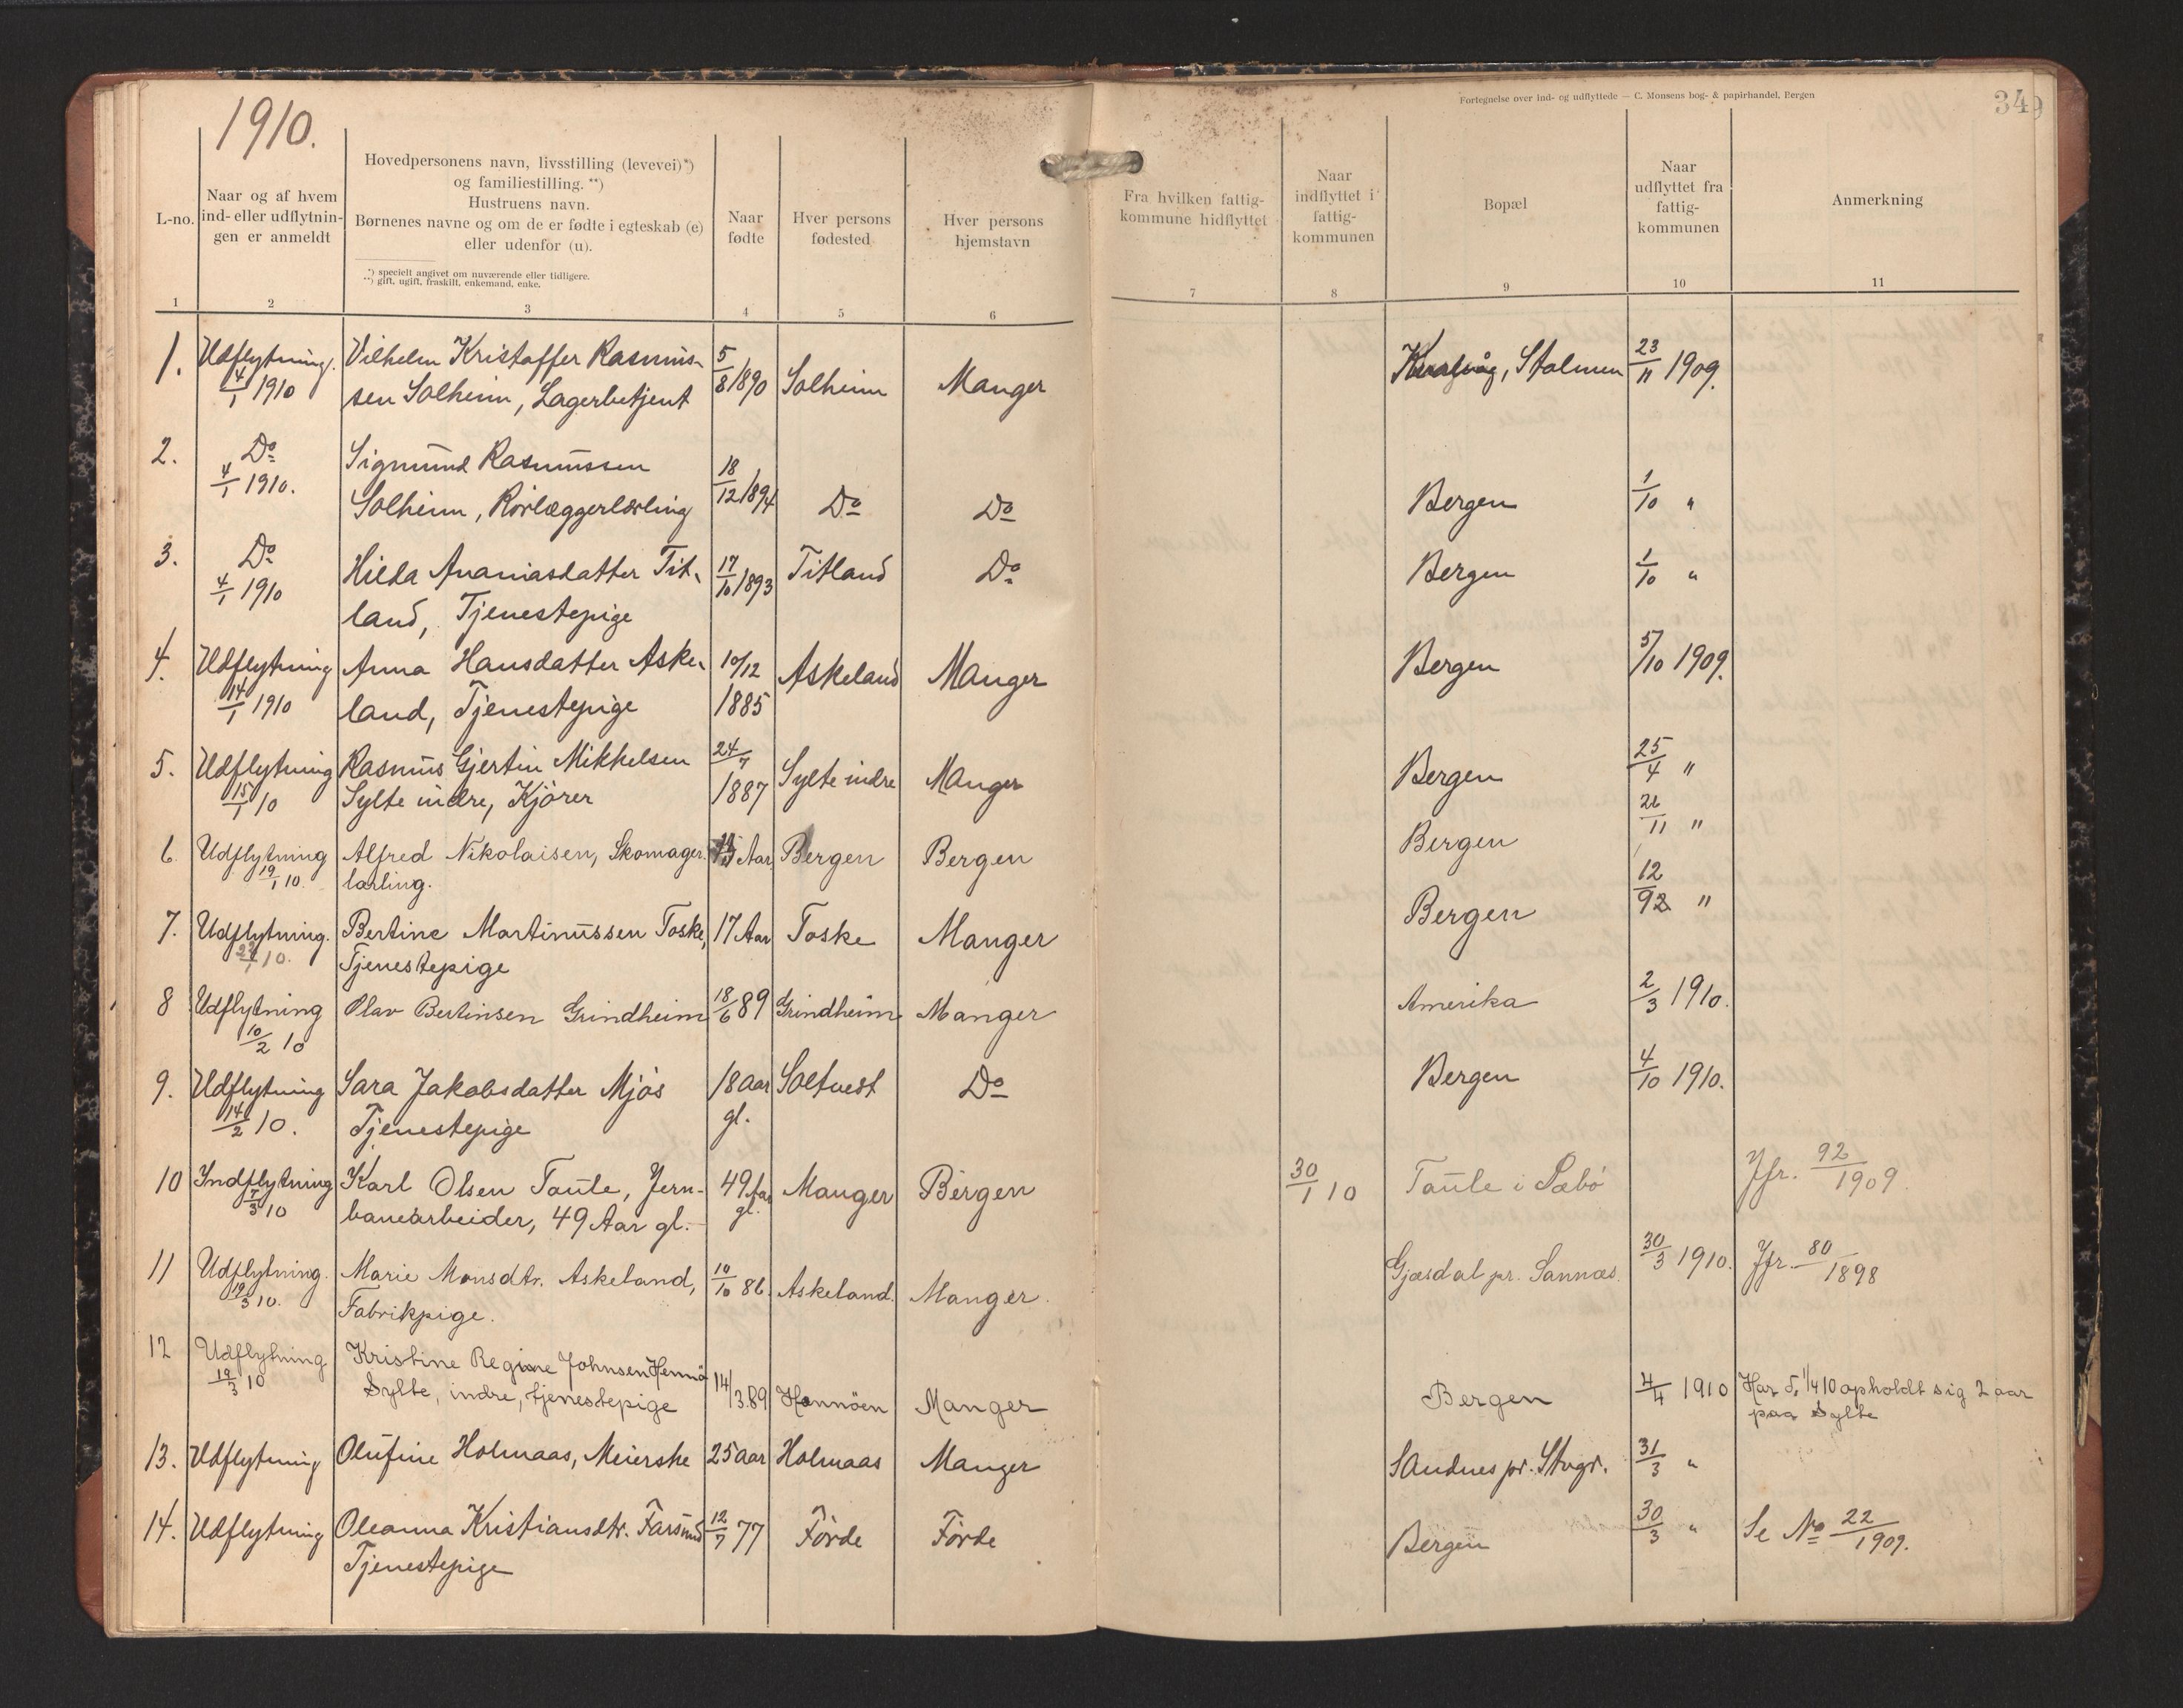 1910.
Fortegnelse over ind- og udflyttede — C. Monsens bog- & papirhandel, Bergen
349
L-no.
Naar og af hvem
ind- eller udflytnin-
gen er anmeldt
Hovedpersonens navn, livsstilling (levevei)*)
og familiestilling. **)
Hustruens navn.
Børnenes navne og om de er fødte i egteskab (e)
eller udenfor (u).
*) specielt angivet om nuværende eller tidligere.
**) gift, ugift, fraskilt, enkemand, enke.
Naar
fødte
Hver persons
fødested
Hver persons
hjemstavn
Fra hvilken fattig-
kommune hidflyttet
Naar
indflyttet i
fattig-
kommunen
Bopæl
Naar
udflyttet fra
fattig-
kommunen
Anmerkning
1 2 3 4 5 6 7 8 9 10 11
1. Udflytning. Vilhelm Kristoffer Rasmus- 5/8 1890 Solheim Manger Stolmen 23/11 1909.
4/1 1910 sen Solheim, Lagerbetjent
2. Do Sigmund Rasmussen 18/12 1894
4/1 1910. Solheim, Rörlæggerlærling Do Do Bergen 1/10 "
3. Do Hilda Ananiasdatter Tit- 17/10 1893 Titland Do Bergen 1/10 "
4/1 1910 land, Tjenestepige
4. Udflytning Anna Hansdatter Aske- 10/12 Askeland Manger Bergen 5/10 1909.
14/1 1910 land, Tjenestepige 1885
5. Udflytning Rasmus Gjertin Mikkelsen 24/7 Sylte indre Manger Bergen 25/4 "
15/1 10 Sylte indre, Kjörer 1887
6 Udflytning Alfred Nikolaisen, Skomager- Aar Bergen Bergen Bergen 26/11 "
19/1 10. lærling.
7. Udflytning. Bertine Martinussen Toske, 17 Aar Toske Manger Bergen 12/92 "
10. Tjenestepige
8 Udflytning Olav Bertinsen Grindheim 18/6 89 Grindheim Manger Amerika 2/3 1910.
10/2 10
9. Udflytning Sara Jakobsdatter Mjös 18 aar Soltvedt Do Bergen 4/10 1910.
14/2 10. Tjenestepige gl.
10 Indflytning Karl Olsen Taule, Jern- 49 Aar Manger Bergen 30/1 10 Taule i Sæbö Jfr. 92/1909.
7/3 10 banearbeider, 49 Aar gl. gl.
11 Udflytning. Marie Monsdtr. Askeland, 10/10 86. Askeland. Manger. Gjæsdal pr. Sannæs. 30/3 1910. Jfr. 80/1898
3 10. Fabrikpige.
12 Udflytning Kristine Regine Johnsen Hennö
19/3 10 Sylte, indre, tjenestepige 14/3.89 Hennöen Manger Bergen 4/4 1910 Har 1/4 10 opholdt sig 2 aar
paa Sylte
13. Udflytning Olufine Holmaas, Meierske 25 aar Holmaas Manger Sandnes pr. Stvgr. 31/3 "
14. Udflytning Oleanna Kristiansdtr. Farsund 12/7 77 Förde Förde Bergen 30/3 " Se No 22/1909.
Tjenestepige